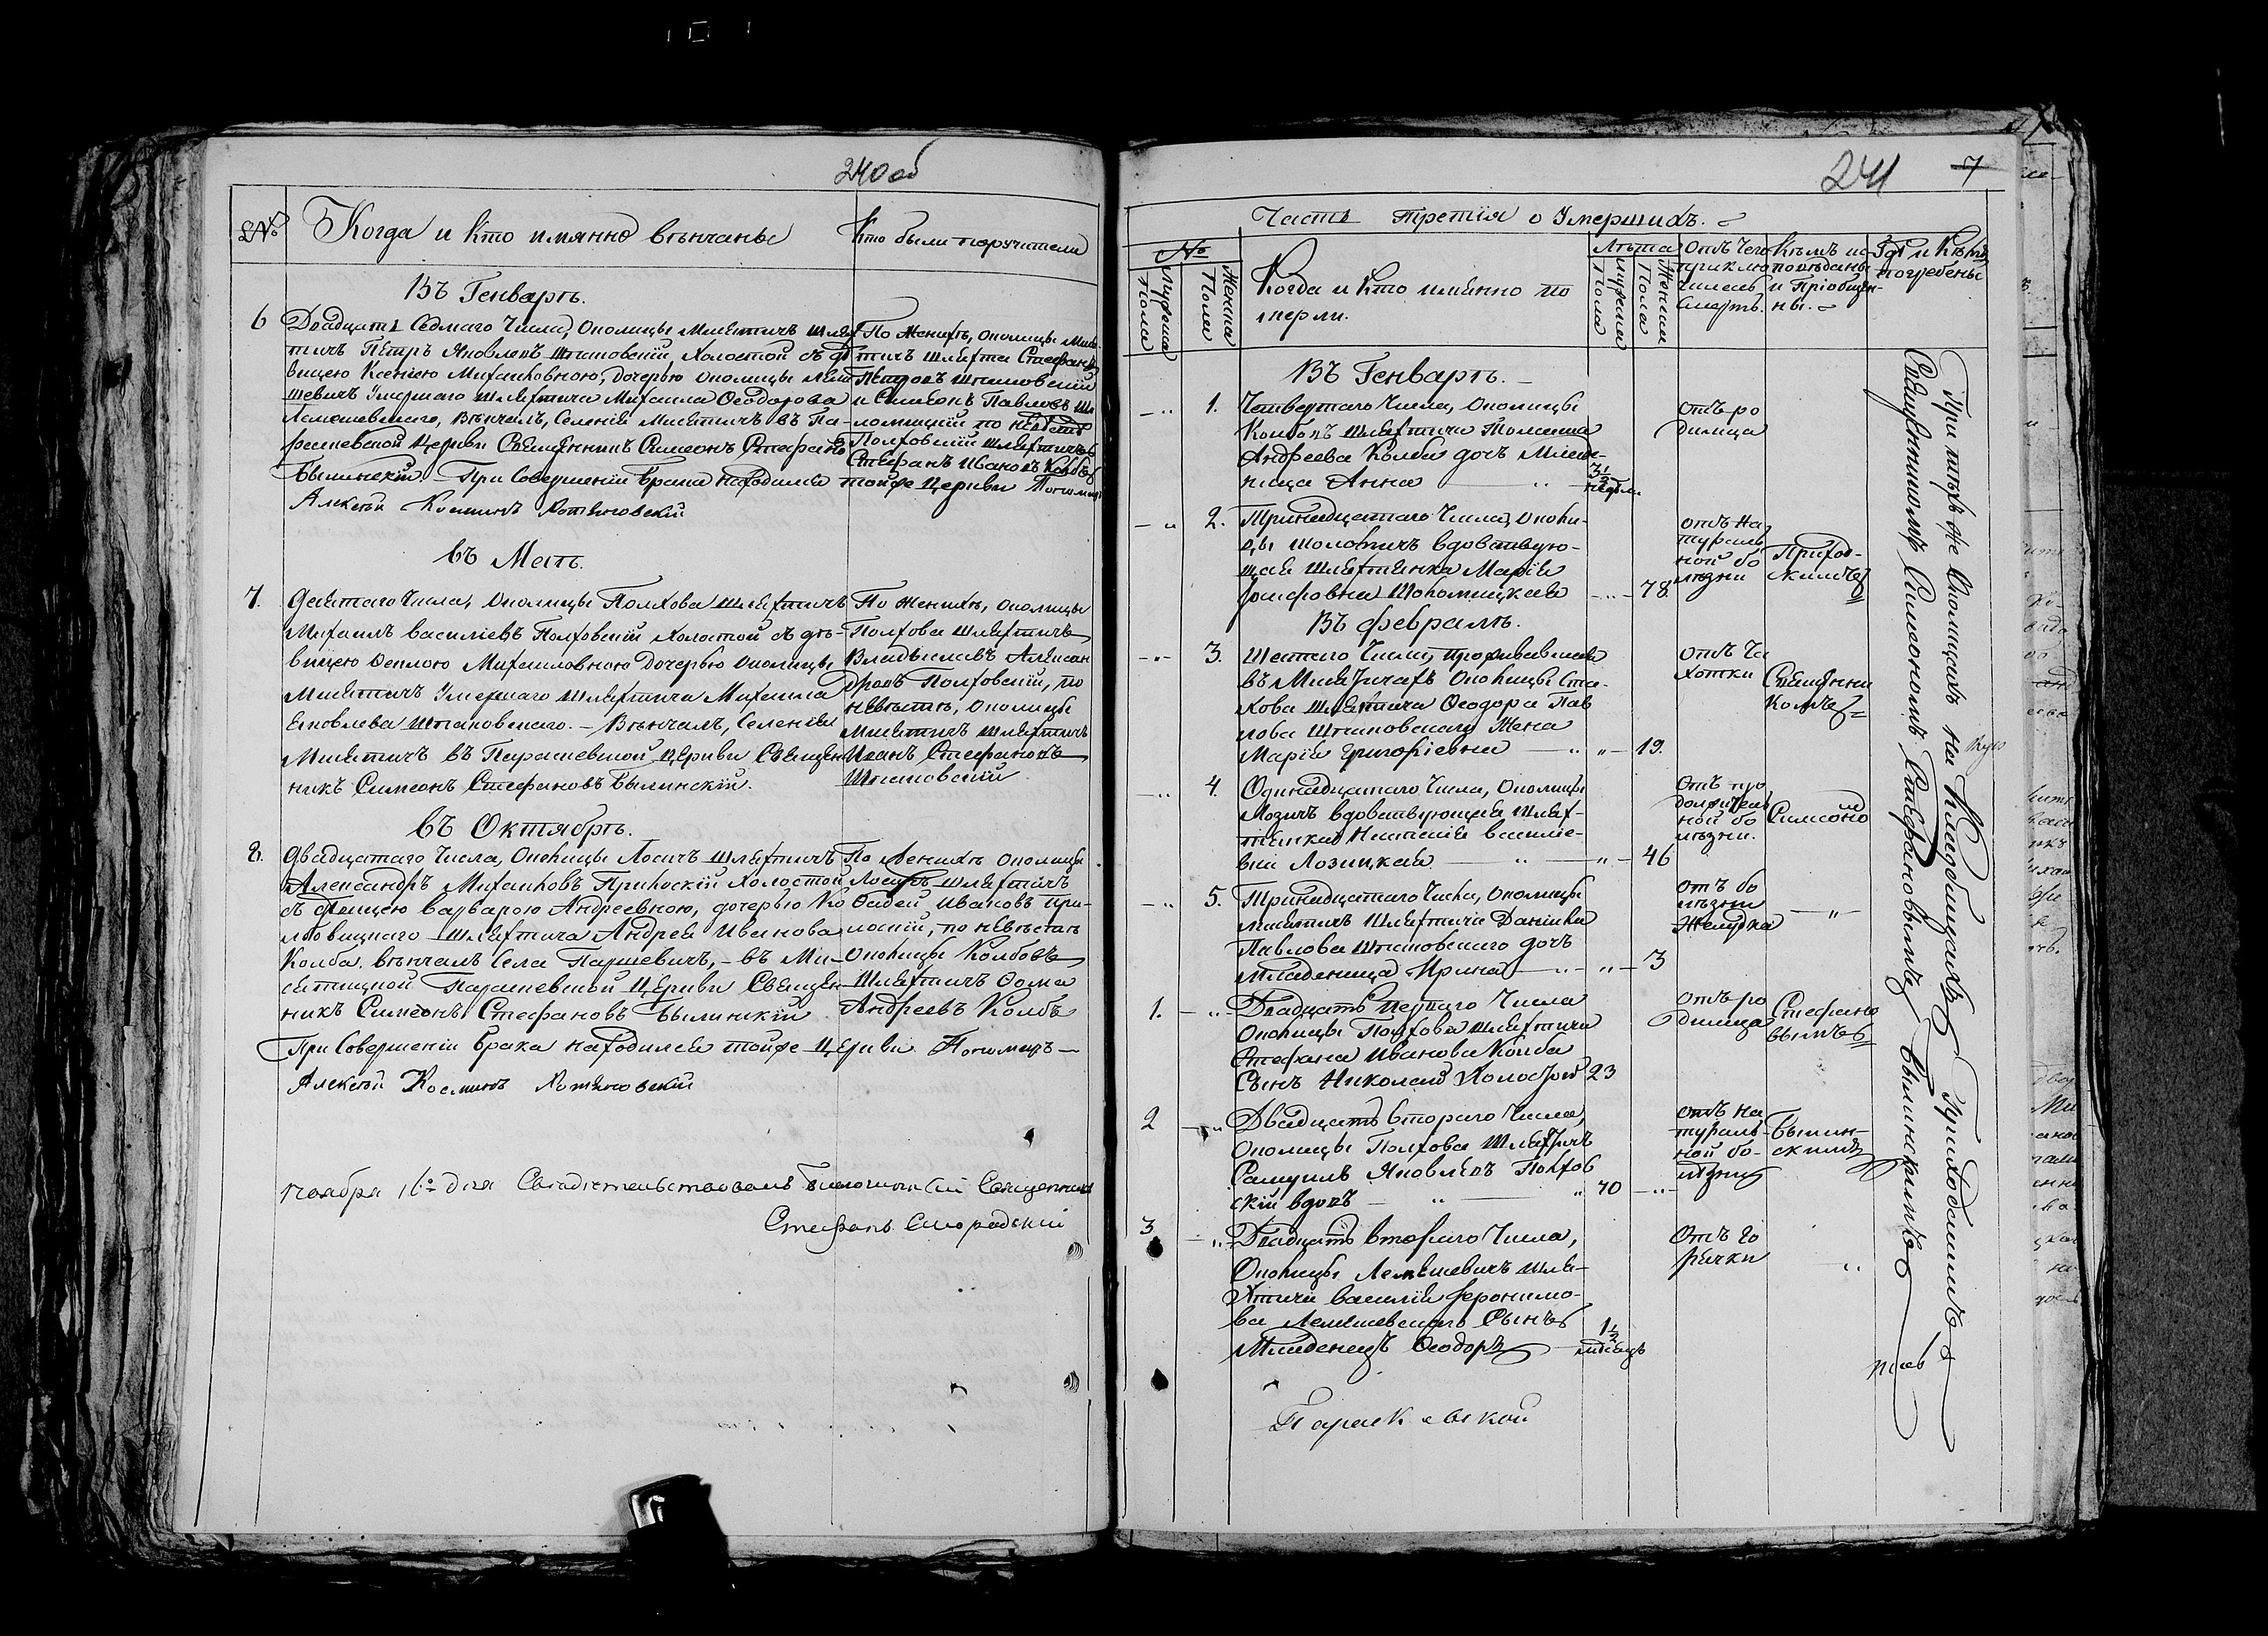 240 об
№
Когда и кто имянно венчаны
Кто были поручители
Въ Генварѣ.
6
Двадцать Седмаго Числа, Околицы Мисятичъ Шлях
тичъ Петръ Яковлевъ Шпаковскій, холостой съ дѣ
вицею Ксеніею Михайловною, дочерью околицы Леме
шевичъ Умершаго Шляхтича Михаила Ѳеодорова
Лемешевскаго, Вѣнчалъ, Селенія Мисятичъ въ Па-
раскевской Церкви Священникъ Симеонъ Стефановъ
Былинскій. При Совершеніи брака находился тойже Церкви Пономарь
Алексѣй Косминъ Котяновскій
По Женихѣ, околицы Мися-
тичъ Шляхта Стефанъ
Петровъ Шпаковскій
и Симеонъ Павловъ
по невѣстѣ
Полховскій Шляхтичъ
Стефанъ Ивановъ Колбъ
въ Маѣ.
7.
Девятаго Числа, Околицы Полхова Шляхтичъ
Михаилъ Василіевъ Полховскій холостой съ дѣ-
вицею Ѳеклою Михайловною дочерью околицы
Мисятичъ Умершаго Шляхтича Михаила
Яковлева Шпаковскаго. - Вѣнчалъ, Селенія
Мисятичъ въ Параскевской Церкви Священ
никъ Симеонъ Стефановъ Былинскій.
По Женихѣ, околицы
Полхова Шляхтичъ
Владыславъ Алексан
дровъ Полховскій, по
невѣстѣ, Околицы
Мисятичъ Шляхтичъ
Иванъ Стефановъ
Шпаковскій
въ Октябрѣ.
8.
Двадцатаго Числа, Околицы Лосичъ Шляхтичъ
Александръ Михайловъ Прилоскій холостой
съ дѣвицею Варварою Андреевною, дочерью Ко
Шляхтича Андрея Иванова
Колба. вѣнчалъ Села Паршевичъ, - въ Ми-
сятицкой Параскевской Церкви Священ
никъ Симеонъ Стефановъ Былинскій
При Совершеніи брака находился тойже Церкви Пономарь
Алексѣй Косминъ Котяновскій
По Женихѣ околицы
Лосичъ Шляхтичъ
Фадей Ивановъ При-
лоскій, по невѣстѣ
околицы Колбовъ
Шляхтичъ Ѳома
Андреевъ Колбъ
Ноября 16го дня Свидѣтельствовалъ Священникъ
Стефанъ
241
7
Часть третія о Умершихъ.
№
Мужеска
Пола
Женска
Пола
Когда и кто именно по
мерли.
Лѣта
Мужеска
Пола
Женска
Пола
Отъ Чего
приклю
чилась
Смерть.
Кѣмъ ис
повѣданы
и Пріобщен-
ны.
Гдѣ и Кѣмъ
погребены
Въ Генварѣ.
1.
Четвертаго Числа, Околицы
Колбовъ Шляхтича
Андреева Колба дочь Младе-
ница Анна
3½
недѣли
отъ ро
димца
2.
Тринадцатаго Числа, околи-
цы вдовствую-
щая Шляхтянка Марія
Іосифовна
78
отъ На
тураль
ной бо
лѣзни
Приход-
скимъ
Въ Февралѣ.
3.
Шестаго Числа, проживавшаго
въ Мисятичахъ Околицы Ста-
хова Шляхтича Ѳеодора Пав
лова Шпаковскаго Жена
Марія Григоріевна
19.
отъ Ча
хотки
Священни
комъ
4.
Одинадцатаго Числа, Околицы
вдовствующая Шлях-
тянка Настасія Василіе-
вна Лозицкая
46
Отъ про
должитель
ной бо
лѣзни.
Симеоно
мъ
5.
Тринадцатаго Числа, Околицы
Мисятичъ Шляхтича Даніила
Павлова Шпаковскаго дочь
Младеница Ирина
3
отъ бо
лѣзни
Желудка
1.
Двадцать Перваго Числа
Околицы Полхова Шляхтича
Стефана Иванова Колба
Сынъ Николай Холостой 23
отъ ро
димца
Стефано
вымъ
2
Двадцать втораго Числа,
Околицы Полхова Шляхтичъ
Самуилъ Яковлевъ Полхов
скій вдовъ
70
отъ на
тураль-
ной бо-
лѣзни
Былин-
скимъ
3
Двадцать втораго Числа,
Околицы Лемешевичъ Шля-
хтича Василія Іеронимо-
ва Лемешевскаго Сынъ
Младенецъ Ѳеодоръ
1½
мѣсяцъ
Отъ Го
рячки
При тѣхъ же Околицахъ на Кладбищахъ Приходскимъ
Священникомъ Симеономъ Стефановымъ Былинскимъ
Параскевской